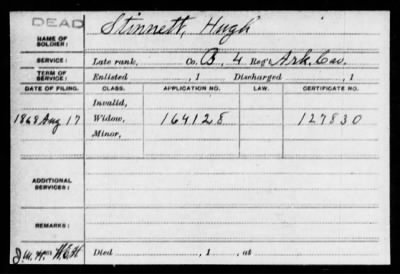 DEAD
NAME OF SOLDIER: Stinnett, Hugh
SERVICE: Late rank, Co. B, 4 Reg't Ark. Cav.
TERM OF SERVICE: Enlisted , 1 Discharged , 1
DATE OF FILING. CLASS. APPLICATION NO. LAW. CERTIFICATE NO.
Invalid,
1868 Aug 17 Widow, 164128 127830
Minor,
ADDITIONAL SERVICES:
REMARKS:
Died , 1 , at